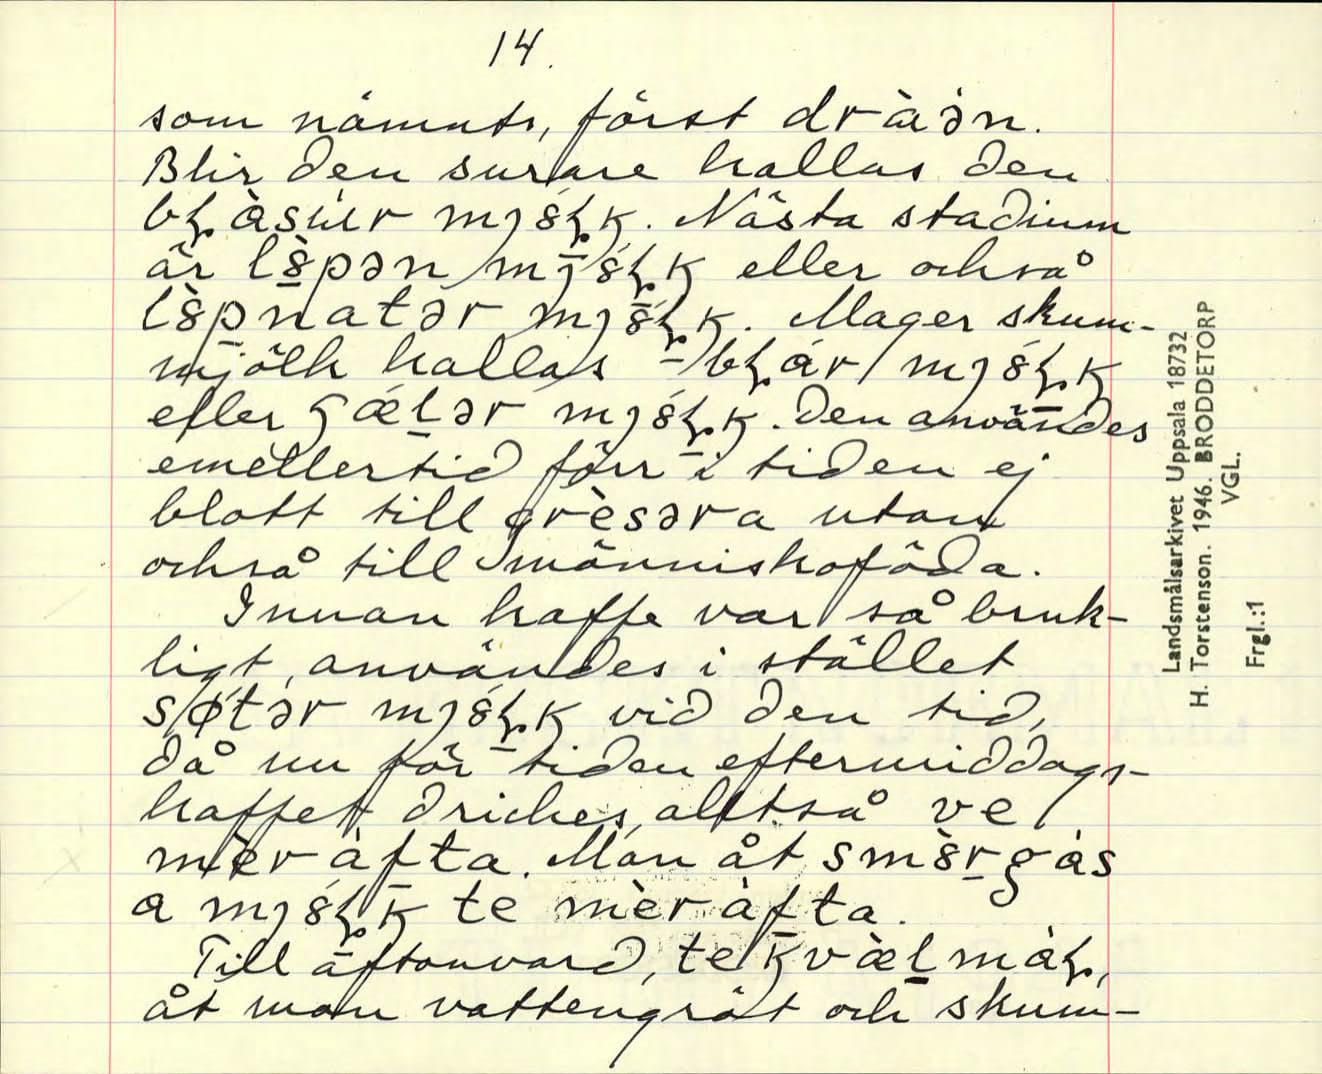 14.
som nämnts, först dràǝn.
Blir den surare kallas den
bɽàsúr mjȣ́ɽk. Nästa stadium
är lȣ̀pǝn mjȣ́ɽk eller också
lȣ̀pnatǝr mjȣ́ɽk. Mager skum-
mjölk kallas blár mjȣ́ɽk
eller gǽlǝr mjȣ́ɽk. Den användes
emellertid förr i tiden ej
blott till grèsǝra utan
också till människoföda.
Innan kaffe var så bruk-
ligt, användes i stället
sǿtǝr mjȣ́ɽk vid den tid,
då nu för tiden eftermiddags-
kaffet drickes, alltså ve
mèràfta. Man åt smȣ̀rgås
a mjȣ́ɽk te mèràfta.
Till aftonvard, te kvæ̀lmàɽ,
åt man vattengröt och skum-
Landsmålsarkivet Uppsala 18732
H. Torstenson. 1946. BRODDETORP
VGL.
Frgl.:1